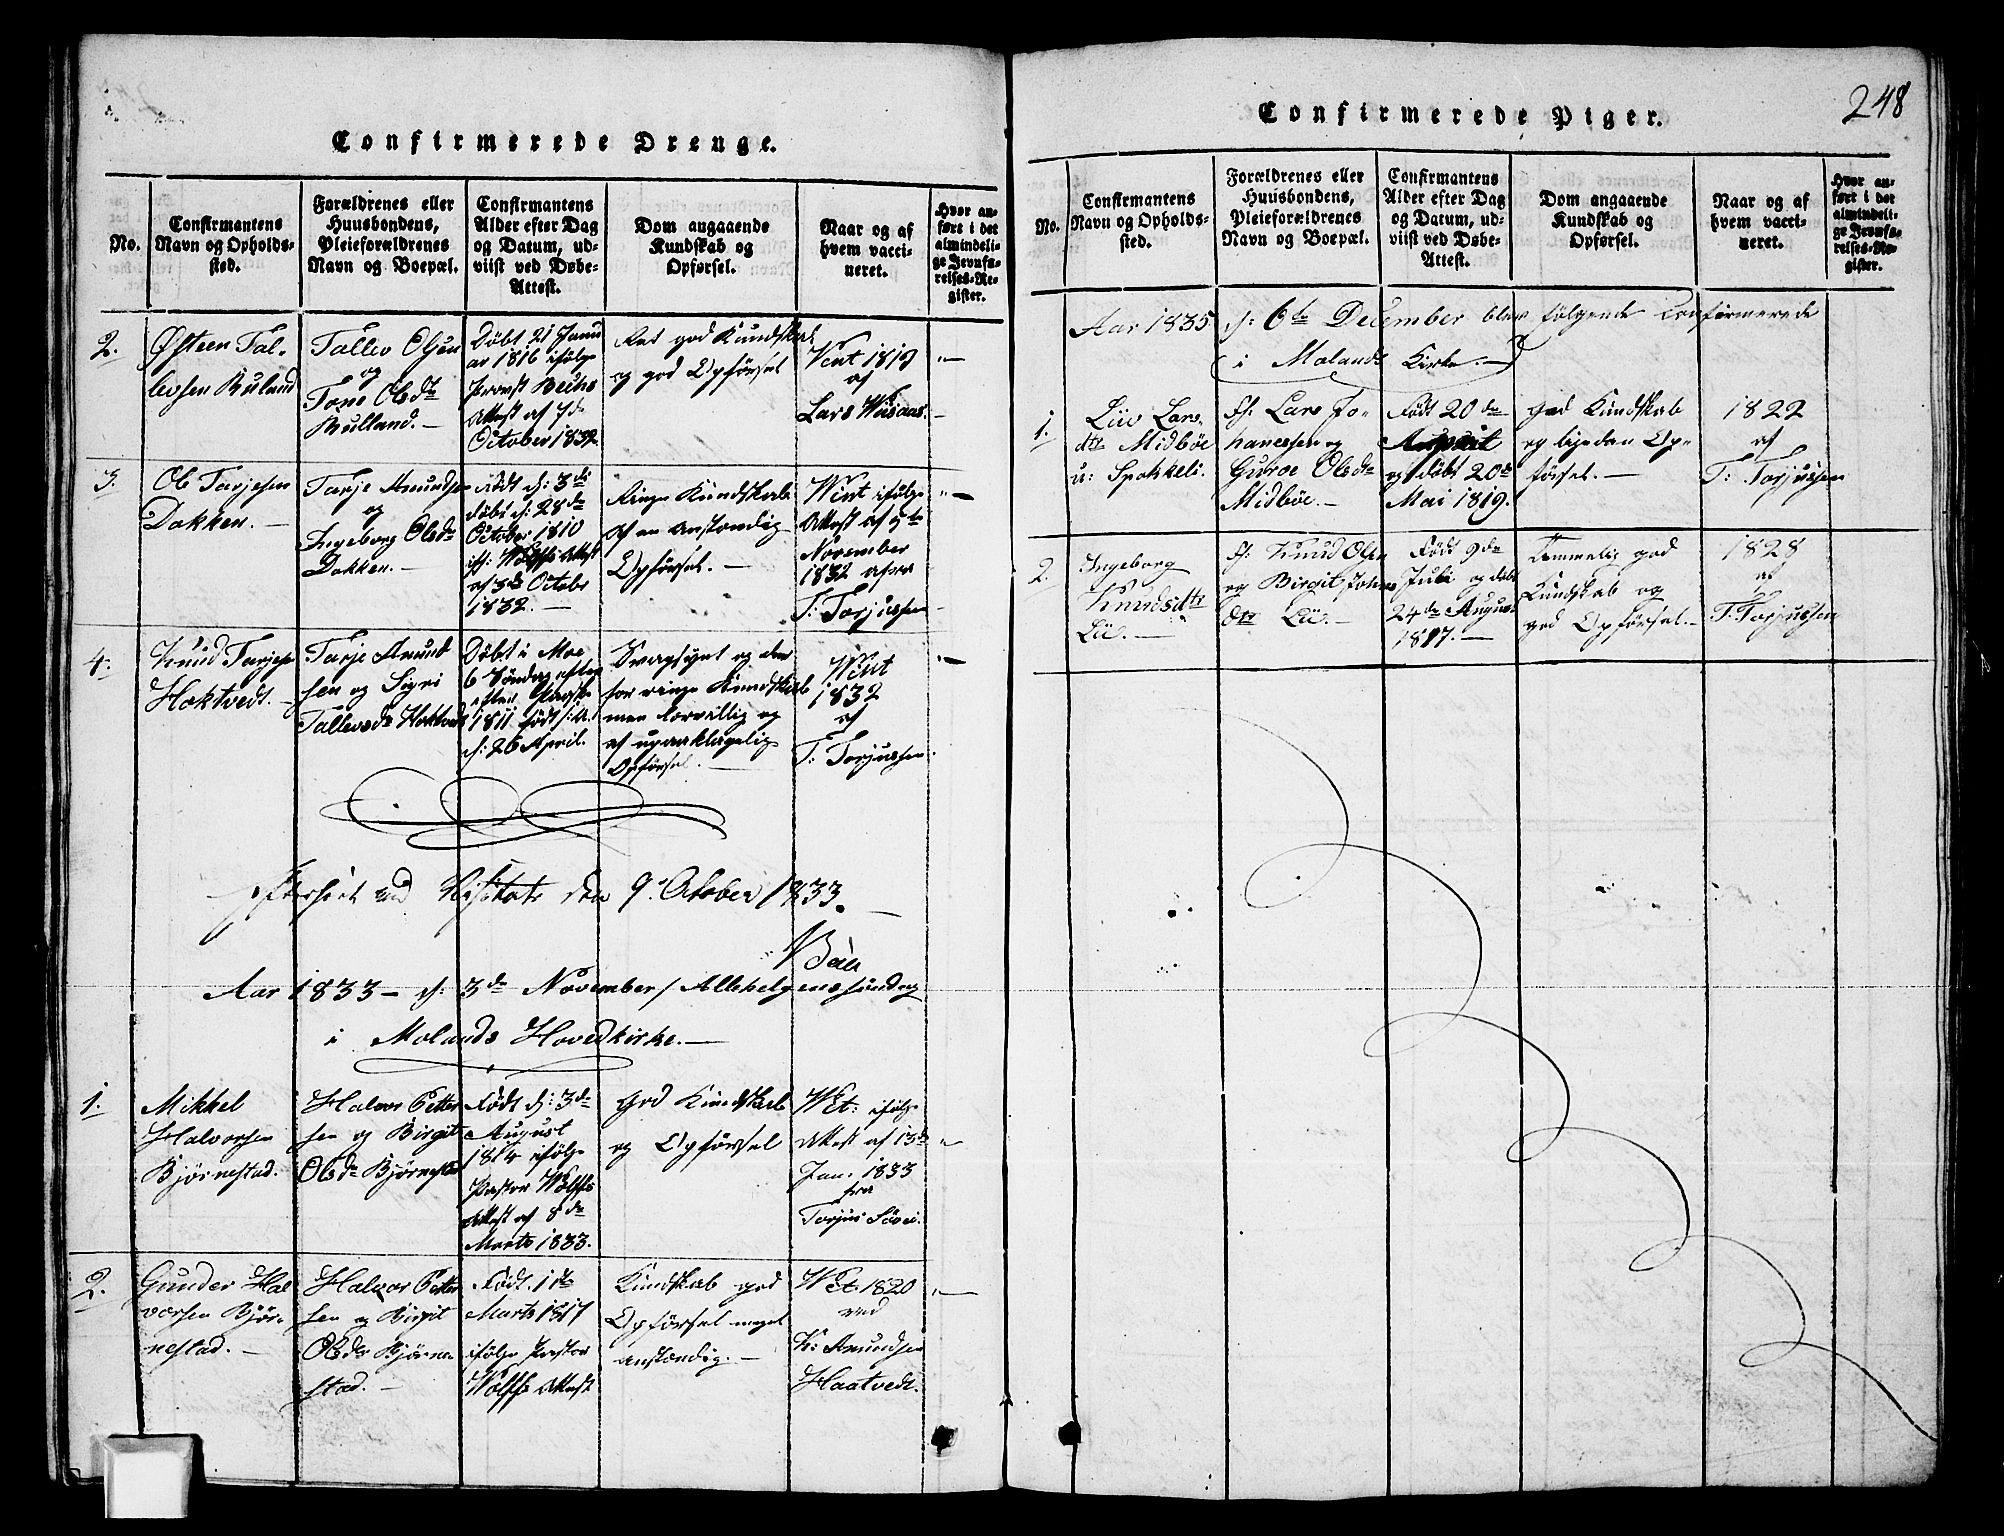 Confirmerede Drenge.
No.
Confirmantens
Navn og Opholds-
sted.
Forældrenes eller
Huusbondens,
Pleieforældrenes
Navn og Boepæl.
Confirmantens
Alder efter Dag
og Datum, ud-
viist ved Døbe-
Attest.
Dom angaaende
Kundskab og
Opførsel.
Naar og af
hvem vacci-
neret.
Hvor an-
ført i det
almindeli-
ge Jevnfø-
relses-Re-
gister.
2.
Østeen Tal-
levsen Ruland
Tallev Olsen
og
Tone Olsdr
Rulland.
Døbt 21 Janu
ar 1816 ifølge
Provst
Attest af 7de
October 1832.
Ret god Kundskab
og god Opførsel
Vint 1819
af
Lars
3.
Ol Tarjesen
Dokken.
Tarje Amundsen
og
Ingeborg Olsdr
Dokken.
Født d: 3de
døbt d: 28de
October 1810
if: Wolffs Attest
af 3de Octobr
1832.
Ringe Kundskab
af en anstændig
Opførsel.
Wint ifølge
Attest af 5te
November
1832 afra
T: Torjussen
4.
Knud Tarjesen
Hoktvedt.
Tarje Amund
sen og Sigri
Tallevsdr Hoktved
Døbt i Moe
6 Søndag efter
Paaske
1811 født s: A.
d: 26 April.
Svagsynt og der
for ringe Kundskab
men forvillig og
af upaaklagelig
Opførsel.
Wint
1832
af
T: Torjussen
Efterseet ved Visitats den 9. October 1833.
Aar 1833 - d: 3de November / Allehelgenssøndag
i Molands Hovedkirke.
1.
Mikkel
Halvorsen
Bjørnestad.
Halvor Petter
sen og Birgit
Olsdr Bjørnestad
Født d: 3de
August
1814 ifølge
Pastor Wolffs
Attest af 8de
Marts 1833.
God Kundskab
og Opførsel
Wct: ifølge
Attest af 13de
Jan. 1833
fra
Torjus
2.
Gunder Hal
vorsen Bjør-
nestad.
Halvor Petter
sen og Birgit
Olsdr Bjørne
stad.
Født 1ste
Marts 1817
ifølge Pastor
Wolffs Attest
Kundskab god
Opførsel meget
anstændig.
Wct: 1820
ved
K: Amundsen
Haatvedt.
248
Confirmerede Piger.
No.
Confirmantens
Navn og Opholds-
sted.
Forældrenes eller
Huusbondens,
Pleieforældrenes
Navn og Boepæl.
Confirmantens
Alder efter Dag
og Datum, ud-
viist ved Døbe-
Attest.
Dom angaaende
Kundskab og
Opførsel.
Naar og af
hvem vacci-
neret.
Hvor an-
ført i det
almindeli-
ge Jevnfø-
relses-Re-
gister.
Aar 1835 d: 6te December blev følgende confirmerede
i Molands Kirke.
1.
Liv Lars-
dtr Midbøe
u: Spokkeli.
F: Lars Jo-
hanessen og
Guroe Olsdtr
Midbøe.
Født 20de
August
og døbt 20de
Mai 1819.
God Kundskab
og ligedan Op-
førsel.
1822
af
T: Torjussen
2.
Ingeborg
Knudsdtr
Lii.
F: Knud Olsen
og Birgit Johns
dtr Lii.
Født 9de
Juli og døbt
24de August
1817.
Temmelig god
Kundskab og
god Opførsel.
1828
af
T. Torjussen